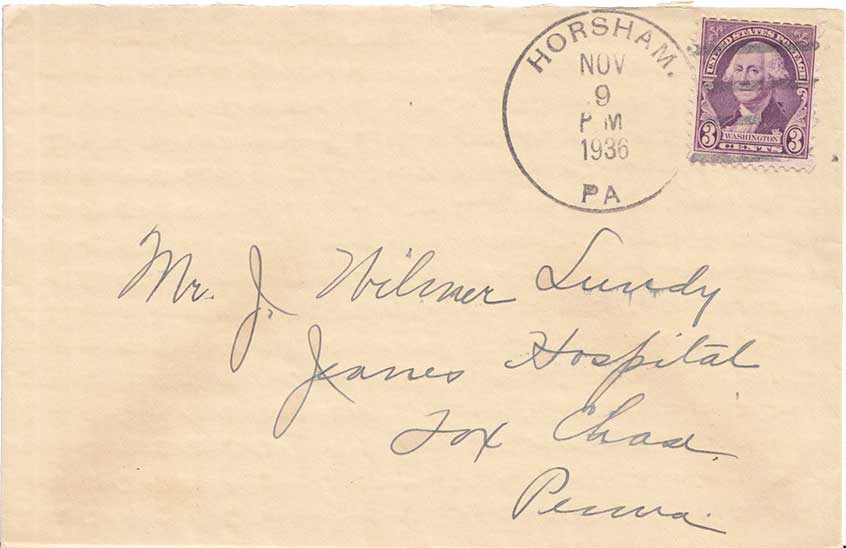 HORSHAM.
NOV
9
PM
1936
PA
UNITED STATES POSTAGE
WASHINGTON
3 CENTS 3
Mr. J. Wilmer Lundy
Jeanes Hospital
Fox Chase.
Penna.